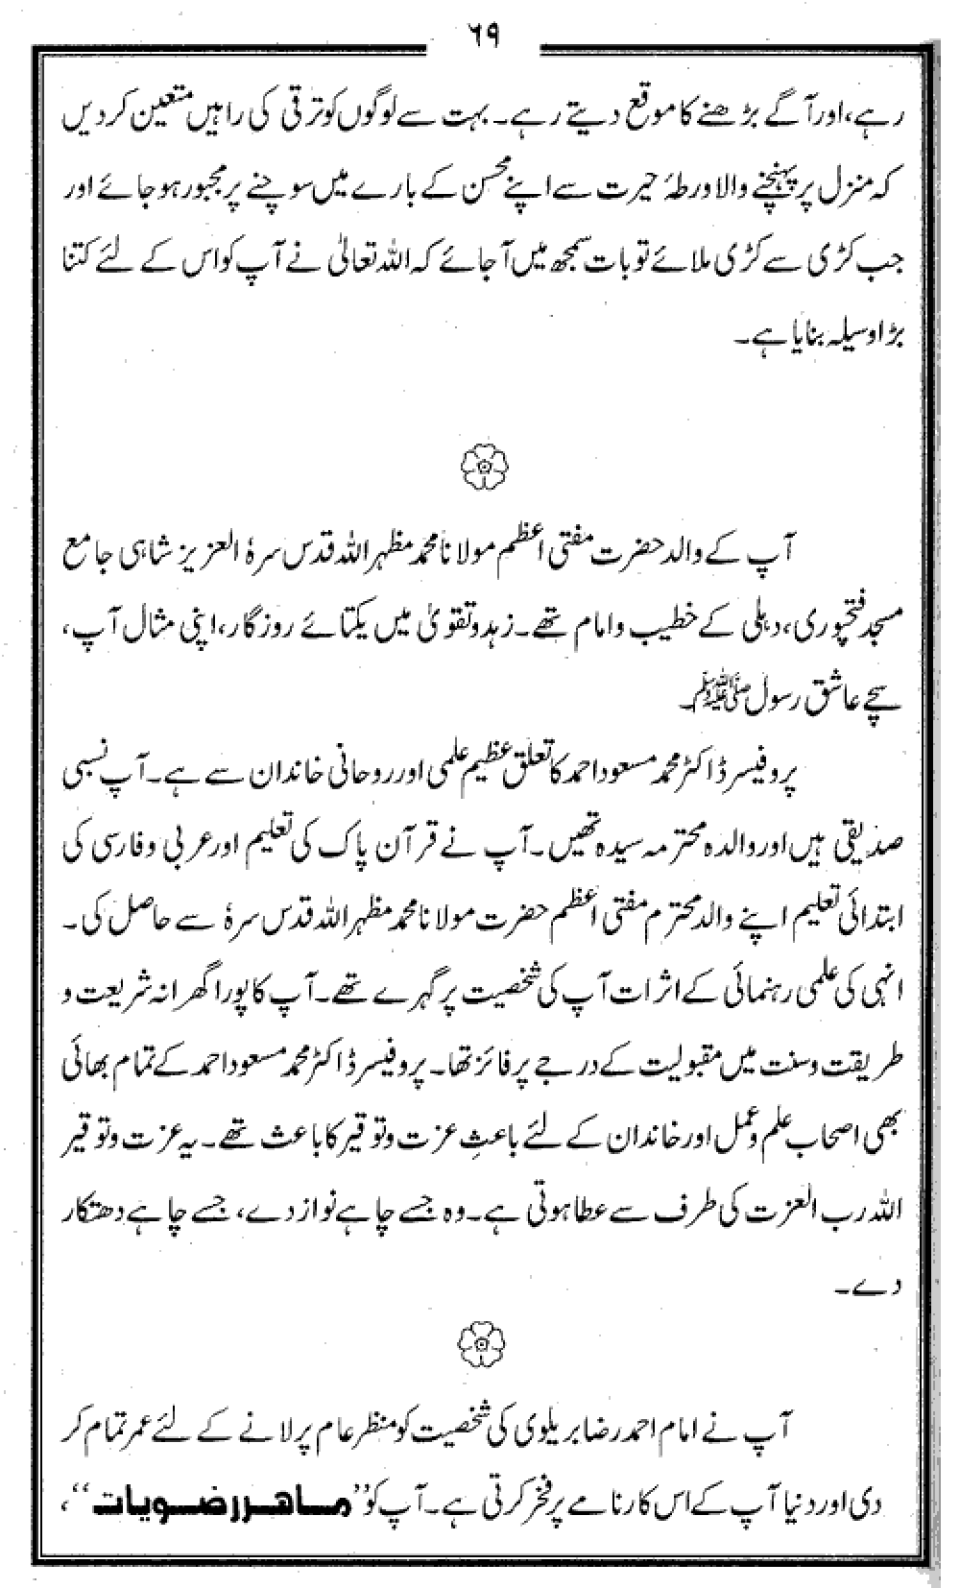 ۶۹
رہے، اور آگے بڑھنے کا موقع دیتے رہے۔ بہت سے لوگوں کو ترقی کی راہیں متعین کردیں
کہ منزل پر پہنچنے والا ورطۂ حیرت سے اپنے محسن کے بارے میں سوچنے پر مجبور ہو جائے اور
جب کڑی سے کڑی ملائے تو بات سمجھ میں آجائے کہ اللہ تعالیٰ نے آپ کو اس کے لئے کتنا
بڑا وسیلہ بنایا ہے۔
آپ کے والد حضرت مفتی اعظم مولانا محمد مظہر اللہ قدس سرہٗ العزیز شاہی جامع
مسجد فتحپوری، دہلی کے خطیب و امام تھے۔ زہد و تقویٰ میں یکتائے روزگار، اپنی مثال آپ،
سچے عاشق رسول ﷺ۔
پروفیسر ڈاکٹر محمد مسعود احمد کا تعلق عظیم علمی اور روحانی خاندان سے ہے۔ آپ نسبی
صدیقی ہیں اور والدہ محترمہ سیدہ تھیں۔ آپ نے قرآن پاک کی تعلیم اور عربی و فارسی کی
ابتدائی تعلیم اپنے والد محترم مفتی اعظم حضرت مولانا محمد مظہر اللہ قدس سرہٗ سے حاصل کی۔
انہی کی علمی رہنمائی کے اثرات آپ کی شخصیت پر گہرے تھے۔ آپ کا پورا گھرانہ شریعت و
طریقت و سنت میں مقبولیت کے درجے پر فائز تھا۔ پروفیسر ڈاکٹر محمد مسعود احمد کے تمام بھائی
بھی اصحاب علم و عمل اور خاندان کے لئے باعثِ عزت و توقیر کا باعث تھے۔ یہ عزت و توقیر
اللہ رب العزت کی طرف سے عطا ہوتی ہے۔ وہ جسے چاہے نواز دے، جسے چاہے دھتکار
دے۔
آپ نے امام احمد رضا بریلوی کی شخصیت کو منظر عام پر لانے کے لئے عمر تمام کر
دی اور دنیا آپ کے اس کارنامے پر فخر کرتی ہے۔ آپ کو ’’ماہر رضویات‘‘،